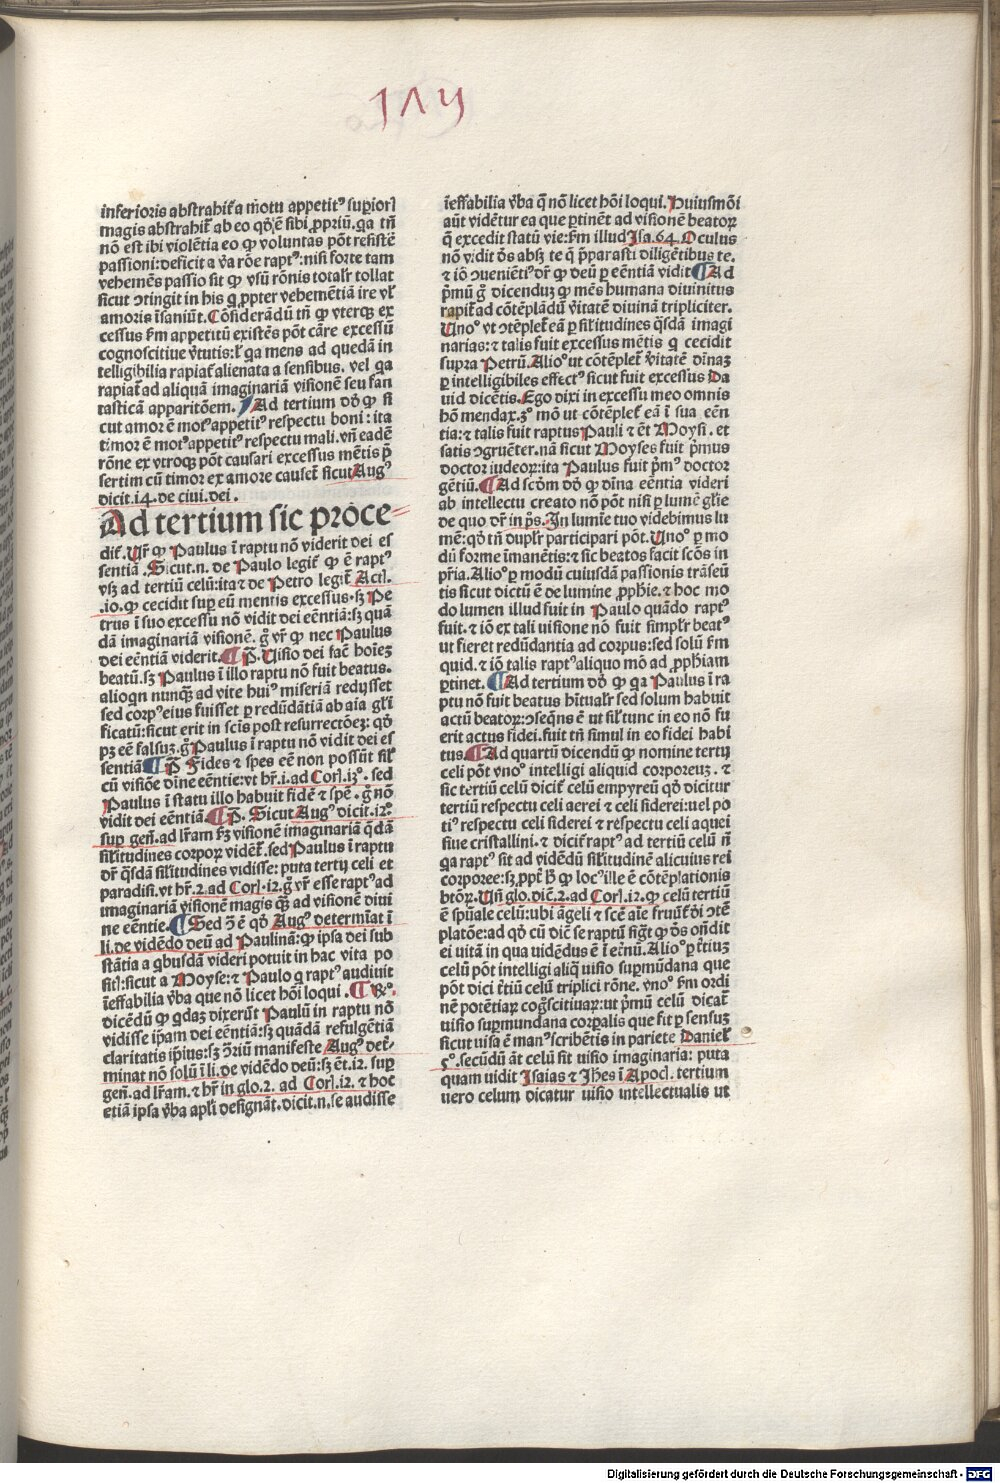 1Λ4
inferioris abstrahit̃ a mōtu appetitꝰ suꝑioꝝ
magis abstrahit̃ ab eo qđ ē sibi ꝓpriū. qa tñ
nō est ibi violētia eo ꝙ voluntas pōt resistē
passioni: deficit a v̄a rōe raptꝰ: nisi forte tam
vehemēs passio sit ꝙ vsū rōnis totalr̄ tollat
sicut ↄtingit in his q ꝓpter vehementiā ire vl̓
amoris īsaniūt. Cōsiderādū tñ ꝙ vterqꝫ ex
cessus ẜm appetitū existēs pōt cāre excessū
cognoscitiue v̓tutis: l̓ qa mens ad quedā in
telligibilia rapiat̃ alienata a sensibus. vel qa
rapiat̃ ad aliquā imaginariā visionē seu fan
tasticā apparitōem. Ad tertium dō ꝙ si
cut amor ē motꝰ appetitꝰ respectu boni: ita
timor ē motꝰ appetitꝰ respectu mali. vñ eadē
rōne ex vtroqꝫ pōt causari excessus mētis p̄
sertim cū timor ex amore causet̃ sicut Augꝰ
dicit .14. de ciui. dei.
Ad tertium sic proce-
dit̃. Vr̄ ꝙ Paulus ī raptu nō viderit dei es
sentiā. Sicut .n. de Paulo legit̃ ꝙ ē raptꝰ
vsqꝫ ad tertiū celū: ita ⁊ de Petro legit̃ Act̄.
.10. ꝙ cecidit suꝑ eū mentis excessus. sꝫ Pe
trus ī suo excessu nō vidit dei eēntiā: sꝫ quā
dā imaginariā visionē. g̊ vr̄ ꝙ nec Paulus
dei eēntiā viderit. ¶ P̄. Visio dei facit hoīeꝫ
beatū. sꝫ Paulus ī illo raptu nō fuit beatus.
alioqn nunqꝫ ad vite huiꝰ miseriā redijsset
sed corpꝰ eius fuisset ꝑ redūdātiā ab aīa gl̓i
ficatū: sicut erit in scīs post resurrectōeꝫ: qđ
pꝫ eē falsuꝫ. g̊ Paulus ī raptu nō vidit dei es
sentiā ¶ P̄ Fides ⁊ spes eē non possūt sil̓
cū visiōe dīne eēntie: vt hr̄ .1. ad Corī. 13°. sed
Paulus ī statu illo habuit fidē ⁊ spē. g̊ nō
vidit dei eēntiā. ¶ P̄. Sicut Augꝰ dicit .12°.
suꝑ geñ. ad lr̄am ẜꝫ visionē imaginariā qdā
sil̓itudines corpoꝝ vidēt̃. sed Paulus ī raptu
dr̄ qsdā sil̓itudines vidisse: puta tertij celi et
paradisi. vt hr̄ .2. ad Corī .12. g̊ vr̄ esse raptꝰ ad
imaginariā visionē magis qꝫ̄ ad visionē diui
ne eēntie. ¶ Sed ↄ̄ ē qđ Augꝰ determīat ī
li. de vidēdo deū ad Paulinā: ꝙ ipsa dei sub
stātia a qbusdā videri potuit in hac vita po
siti: sicut a Moyse: ⁊ Paulo q raptꝰ audiuit
īeffabilia v̓ba que nō licet hōi loqui. ¶ Rº.
dicēdū ꝙ qdaꝫ dixerūt Paulū in raptu nō
vidisse ip̄am dei eēntiā: sꝫ quādā refulgētiā
claritatis ip̄ius: sꝫ ↄ̄riū manifeste Augꝰ det̓-
minat nō solū ī li. de vidēdo deū: sꝫ ēt .12. suꝑ
geñ. ad lr̄am. ⁊ hr̄ in glo. 2. ad Corī .12. ⁊ hoc
etiā ipsa v̓ba apl̓i designāt. dicit .n. se audisse
īeffabilia v̓ba q̄ nō licet hōi loqui. Huiusmōi
aūt vidētur ea que ꝑtinēt ad visionē beatoꝝ
q̄ excedit statū vie: ẜm illud Isa. 64. Oculus
nō vidit dō̄s absqꝫ te q̄ p̄parasti diligētibus te.
⁊ iō ↄuenientiꝰ dr̄ ꝙ deū ꝑ eēntiā vidit ¶ Ad
p̓mū g̊ dicenduꝫ ꝙ mēs humana diuinitus
rapit̃ ad cōtēplādū v̓itatē diuinā tripliciter.
Vnoº vt ↄtēplet̃ eā ꝑ sil̓itudines qsdā imagi
narias: ⁊ talis fuit excessus mētis q cecidit
supra Petrū. Alioº ut cōtēplet̃ v̓itatē dīnaꝫ
ꝑ intelligibiles effectꝰ sicut fuit excessus Da
uid dicētis. Ego dixi in excessu meo omnis
hō mendax. 3º mō ut cōtēplet̃ eā ī sua eēn
tia: ⁊ talis fuit raptus Pauli ⁊ ēt Moysi. et
satis ↄgruēter. nā sicut Moyses fuit p̓mus
doctor iudeoꝝ: ita Paulus fuit p̓mꝰ doctor
gētiū. ¶ Ad scd̄m dō ꝙ dīna eēntia videri
ab intellectu creato nō pōt nisi ꝑ lumē gl̓ie
de quo dr̄ in p̄s. In lumīe tuo videbimus lu
mē: qđ tñ duplr̄ participari pōt. Vnoº ꝑ mo
dū forme īmanētis: ⁊ sic beatos facit scōs in
pr̄ia. Alioº ꝑ modū cuiusdā passionis trāseū
tis sicut dictū ē de lumine ꝓphie. ⁊ hoc mo
do lumen illud fuit in Paulo quādo raptꝰ
fuit. ⁊ iō ex tali uisione nō fuit simpl̓r beatꝰ
ut fieret redūdantia ad corpus: sed solū ẜm
quid. ⁊ iō talis raptꝰ aliquo mō ad ꝓphiam
ꝑtinet. ¶ Ad tertium dō ꝙ qa Paulus ī ra
ptu nō fuit beatus hītualr̄ sed solum habuit
actū beatoꝝ: ↄseqñs ē ut sil̓ tunc in eo nō fu
erit actus fidei. fuit tñ simul in eo fidei habi
tus. ¶ Ad quartū dicendū ꝙ nomine tertij
celi pōt vnoº intelligi aliquid corporeuꝫ. ⁊
sic tertiū celū dicit̃ celū empyreū qđ dicitur
tertiū respectu celi aerei ⁊ celi siderei: uel po
tiꝰ respectu celi siderei ⁊ respectu celi aquei
siue cristallini. ⁊ dicit̃ raptꝰ ad tertiū celū nō
qa raptꝰ sit ad vidēdū sil̓itudinē alicuius rei
corporee: sꝫ ꝓpt̓ h̄ ꝙ locꝰ ille ē cōtēplationis
btōꝝ. Vñ glo. dic̄. 2. ad Corī .12. ꝙ celū tertiū
ē spūale celū: ubi āgeli ⁊ scē aīe fruūt̃ dei ↄtē
platōe: ad qđ cū dic̄ se raptū sigt̄ ꝙ dō̄s oñdit
ei uitā in qua uidēdus ē ī et̓nū. Alioº ꝑ t̓tiuꝫ
celū pōt intelligi aliq̄ uisio suꝑmūdana que
pōt dici t̓tiū celū triplici rōne. vnoº ẜm ordi
nē potētiaꝝ cog̓scitiuaꝝ: ut p̓mū celū dicat̃
uisio suꝑmundana corꝑalis que fit ꝑ sensuꝫ
sicut uisa ē manꝰ scribētis in pariete Daniel̓
5º. secūdū āt celū sit uisio imaginaria: puta
quam uidit Isaias ⁊ Ihēs ī Apoc̄. tertium
uero celum dicatur uisio intellectualis ut
Digitalisierung gefördert durch die Deutsche Forschungsgemeinschaft - DFG